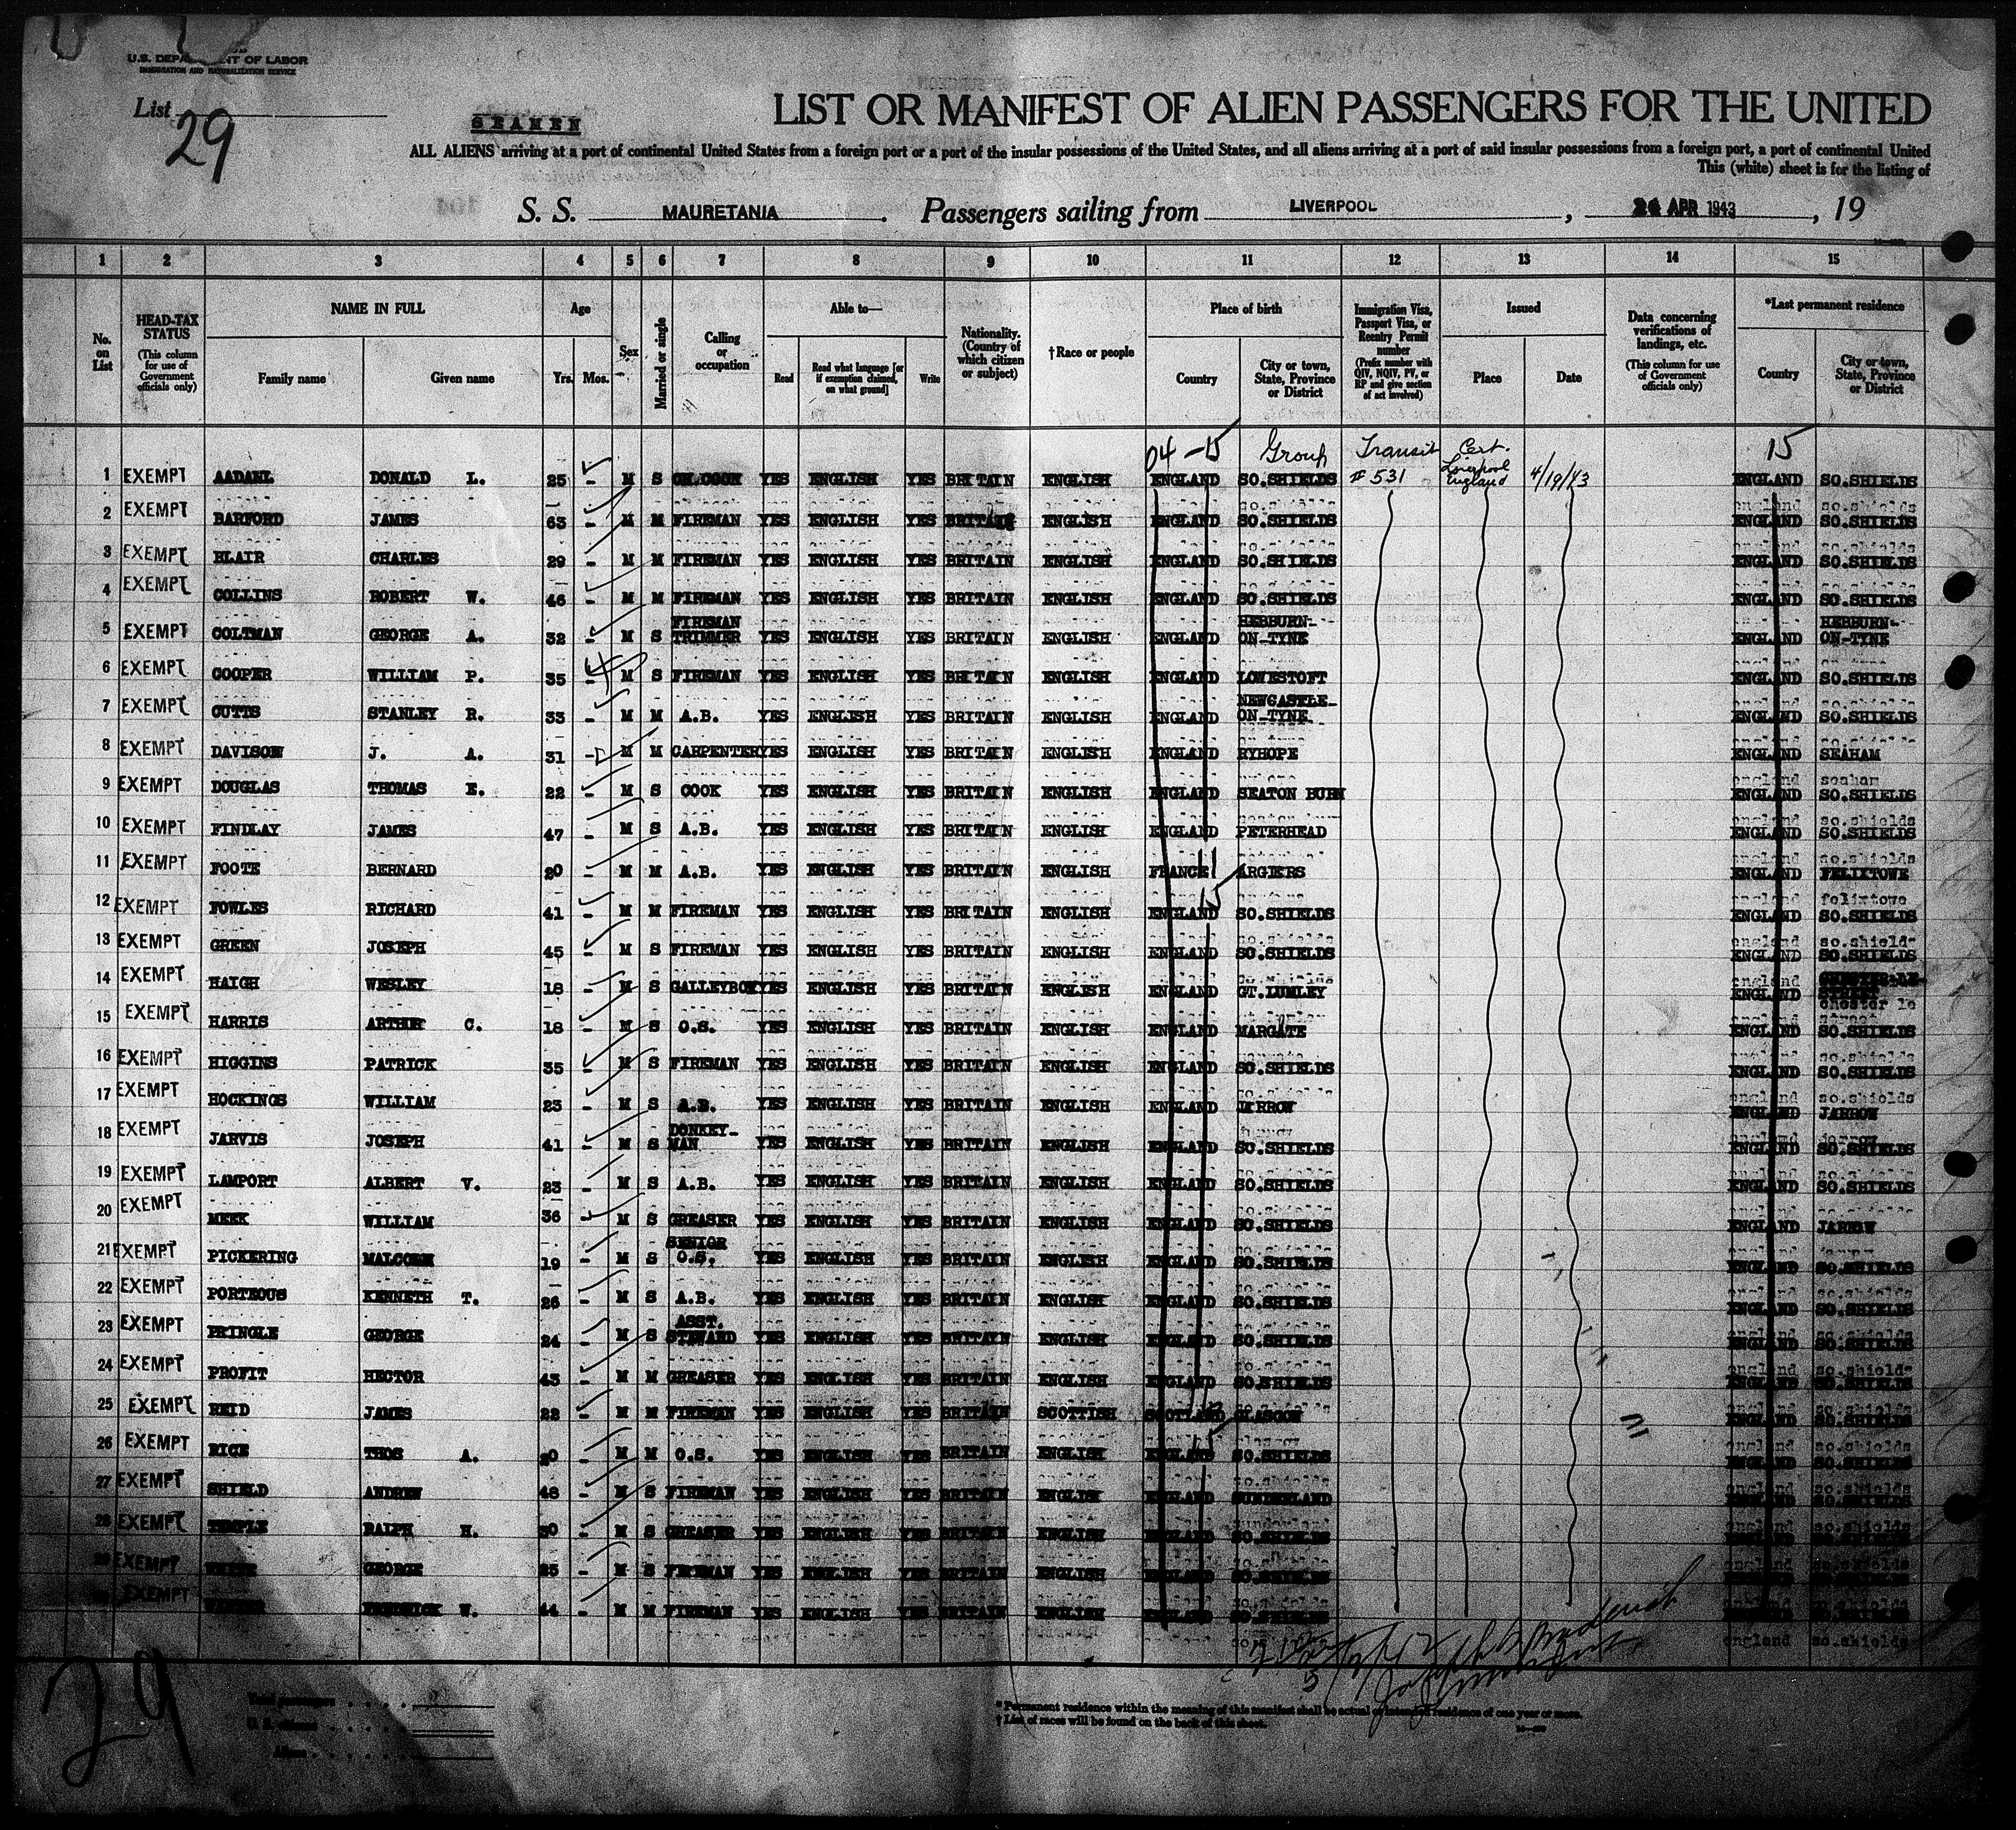 U.S. DEPARTMENT OF LABOR
IMMIGRATION AND NATURALIZATION SERVICE
List 29
SEAMEN
LIST OR MANIFEST OF ALIEN PASSENGERS FOR THE UNITED
ALL ALIENS arriving at a port of continental United States from a foreign port or a port of the insular possessions of the United States, and all aliens arriving at a port of said insular possessions from a foreign port, a port of continental United
This (white) sheet is for the listing of
S. S. MAURETANIA. Passengers sailing from LIVERPOOL, APR 1943, 19
1 2 3 4 5 6 7 8 9 10 11 12 13 14 15
No. on List
HEAD-TAX STATUS (This column for use of Government officials only)
NAME IN FULL
Family name Given name
Age
Yrs. Mos.
Sex
Married or single
Calling or occupation
Able to—
Read Read what language [or if exemption claimed, on what ground] Write
Nationality. (Country of which citizen or subject)
†Race or people
Place of birth
Country City or town, State, Province or District
Immigration Visa, Passport Visa, or Reentry Permit number (Prefix number with QIV, NQIV, PV, or RP and give section of act involved)
Issued
Place Date
Data concerning verifications of landings, etc. (This column for use of Government officials only)
*Last permanent residence
Country City or town, State, Province or District
04-15 Group Transit Cert. 15
1 EXEMPT AADAHL DONALD L. 25 - M S CH.COOK YES ENGLISH YES BRITAIN ENGLISH ENGLAND SO.SHIELDS #531 Liverpool England 4/19/43 ENGLAND SO.SHIELDS
2 EXEMPT BARFORD JAMES 63 - M M FIREMAN YES ENGLISH YES BRITAIN ENGLISH ENGLAND SO.SHIELDS ENGLAND SO.SHIELDS
3 EXEMPT BLAIR CHARLES 29 - M M FIREMAN YES ENGLISH YES BRITAIN ENGLISH ENGLAND SO.SHIELDS ENGLAND SO.SHIELDS
4 EXEMPT COLLINS ROBERT W. 46 - M M FIREMAN YES ENGLISH YES BRITAIN ENGLISH ENGLAND SO.SHIELDS ENGLAND SO.SHIELDS
5 EXEMPT COLTMAN GEORGE A. 32 - M S FIREMAN TRIMMER YES ENGLISH YES BRITAIN ENGLISH ENGLAND HEBBURN-ON-TYNE ENGLAND HEBBURN-ON-TYNE
6 EXEMPT COOPER WILLIAM P. 35 - M S FIREMAN YES ENGLISH YES BRITAIN ENGLISH ENGLAND LOWESTOFT ENGLAND SO.SHIELDS
7 EXEMPT CUTTS STANLEY R. 33 - M M A.B. YES ENGLISH YES BRITAIN ENGLISH ENGLAND NEWCASTLE-ON-TYNE ENGLAND SO.SHIELDS
8 EXEMPT DAVISON J. A. 31 - M M CARPENTER YES ENGLISH YES BRITAIN ENGLISH ENGLAND RYHOPE ENGLAND SEAHAM
9 EXEMPT DOUGLAS THOMAS E. 22 - M S COOK YES ENGLISH YES BRITAIN ENGLISH ENGLAND SEATON BURN ENGLAND SO.SHIELDS
10 EXEMPT FINDLAY JAMES 47 - M S A.B. YES ENGLISH YES BRITAIN ENGLISH ENGLAND PETERHEAD ENGLAND SO.SHIELDS
11 EXEMPT FOOTE BERNARD 20 - M M A.B. YES ENGLISH YES BRITAIN ENGLISH FRANCE ARGIERS ENGLAND FELIXTOWE
12 EXEMPT FOWLES RICHARD 41 - M M FIREMAN YES ENGLISH YES BRITAIN ENGLISH ENGLAND SO.SHIELDS ENGLAND SO.SHIELDS
13 EXEMPT GREEN JOSEPH 45 - M S FIREMAN YES ENGLISH YES BRITAIN ENGLISH ENGLAND SO.SHIELDS ENGLAND SO.SHIELDS
14 EXEMPT HAIGH WESLEY 18 - M S GALLEYBOY YES ENGLISH YES BRITAIN ENGLISH ENGLAND GT.LUMLEY ENGLAND CHESTER-LE-STREET
15 EXEMPT HARRIS ARTHUR C. 18 - M S O.S. YES ENGLISH YES BRITAIN ENGLISH ENGLAND MARGATE ENGLAND SO.SHIELDS
16 EXEMPT HIGGINS PATRICK 35 - M S FIREMAN YES ENGLISH YES BRITAIN ENGLISH ENGLAND SO.SHIELDS ENGLAND SO.SHIELDS
17 EXEMPT HOCKINGS WILLIAM 23 - M S A.B. YES ENGLISH YES BRITAIN ENGLISH ENGLAND JARROW ENGLAND JARROW
18 EXEMPT JARVIS JOSEPH 41 - M S DONKEY-MAN YES ENGLISH YES BRITAIN ENGLISH ENGLAND SO.SHIELDS ENGLAND SO.SHIELDS
19 EXEMPT LAMPORT ALBERT V. 23 - M S A.B. YES ENGLISH YES BRITAIN ENGLISH ENGLAND SO.SHIELDS ENGLAND SO.SHIELDS
20 EXEMPT MEEK WILLIAM 36 - M S GREASER YES ENGLISH YES BRITAIN ENGLISH ENGLAND SO.SHIELDS ENGLAND JARROW
21 EXEMPT PICKERING MALCOLM 19 - M S SENIOR O.S. YES ENGLISH YES BRITAIN ENGLISH ENGLAND SO.SHIELDS ENGLAND SO.SHIELDS
22 EXEMPT PORTEOUS KENNETH T. 26 - M S A.B. YES ENGLISH YES BRITAIN ENGLISH ENGLAND SO.SHIELDS ENGLAND SO.SHIELDS
23 EXEMPT PRINGLE GEORGE 24 - M S ASST. STEWARD YES ENGLISH YES BRITAIN ENGLISH ENGLAND SO.SHIELDS ENGLAND SO.SHIELDS
24 EXEMPT PROFIT HECTOR 43 - M M GREASER YES ENGLISH YES BRITAIN ENGLISH ENGLAND SO.SHIELDS ENGLAND SO.SHIELDS
25 EXEMPT REID JAMES 22 - M M FIREMAN YES ENGLISH YES BRITAIN SCOTTISH SCOTLAND GLASGOW ENGLAND SO.SHIELDS
26 EXEMPT RICE THOS A. 20 - M M O.S. YES ENGLISH YES BRITAIN ENGLISH ENGLAND SO.SHIELDS ENGLAND SO.SHIELDS
27 EXEMPT SHIELD ANDREW 48 - M S FIREMAN YES ENGLISH YES BRITAIN ENGLISH ENGLAND SUNDERLAND ENGLAND SO.SHIELDS
28 EXEMPT TEMPLE RALPH H. 30 - M S GREASER YES ENGLISH YES BRITAIN ENGLISH ENGLAND SO.SHIELDS ENGLAND SO.SHIELDS
29 EXEMPT WHITE GEORGE 25 - M S FIREMAN YES ENGLISH YES BRITAIN ENGLISH ENGLAND SO.SHIELDS ENGLAND SO.SHIELDS
EXEMPT FREDERICK W. 44 - M M FIREMAN YES ENGLISH YES BRITAIN ENGLISH ENGLAND SO.SHIELDS ENGLAND SO.SHIELDS
england so.shields
29
Total passengers
U. S. citizens
Aliens
* Permanent residence within the meaning of this manifest shall be actual or intended residence of one year or more.
† List of races will be found on the back of this sheet.